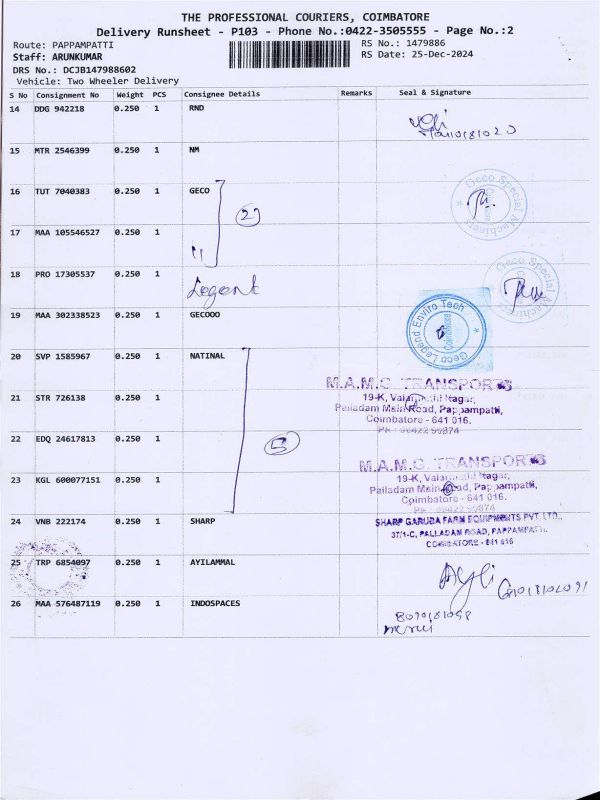 THE PROFESSIONAL COURIERS, COIMBATORE
Delivery Runsheet - P103 - Phone No.:0422-3505555 - Page No.:2
Route: PAPPAMPATTI RS No.: 1479886
Staff: ARUNKUMAR RS Date: 25-Dec-2024
DRS No.: DCJB147988602
Vehicle: Two Wheeler Delivery
S No Consignment No Weight PCS Consignee Details Remarks Seal & Signature
14 DDG 942218 0.250 1 RND
15 MTR 2546399 0.250 1 NM
16 TUT 7040383 0.250 1 GECO
2
Geco Special Machines
17 MAA 105546527 0.250 1
"
18 PRO 17305537 0.250 1 Legent
Geco Special Machines
19 MAA 302338523 0.250 1 GECOOO
Geco Legend Enviro Tech
Coimbatore
20 SVP 1585967 0.250 1 NATINAL
M.A.M.C. TRANSPORTS
21 STR 726138 0.250 1
19-K, Nagar,
Palladam Main Road, Pappampatti,
Coimbatore - 641 016.
22 EDQ 24617813 0.250 1
5
M.A.M.C. TRANSPORTS
23 KGL 600077151 0.250 1
19-K, Nagar,
Palladam Main Road, Pappampatti,
Coimbatore - 641 016.
24 VNB 222174 0.250 1 SHARP
SHARP GARUDA FARM EQUIPMENTS PVT. LTD.,
37/1-C, PALLADAM ROAD, PAPPAMPATTI,
COIMBATORE - 641 016
25 TRP 6854097 0.250 1 AYILAMMAL
26 MAA 576487119 0.250 1 INDOSPACES